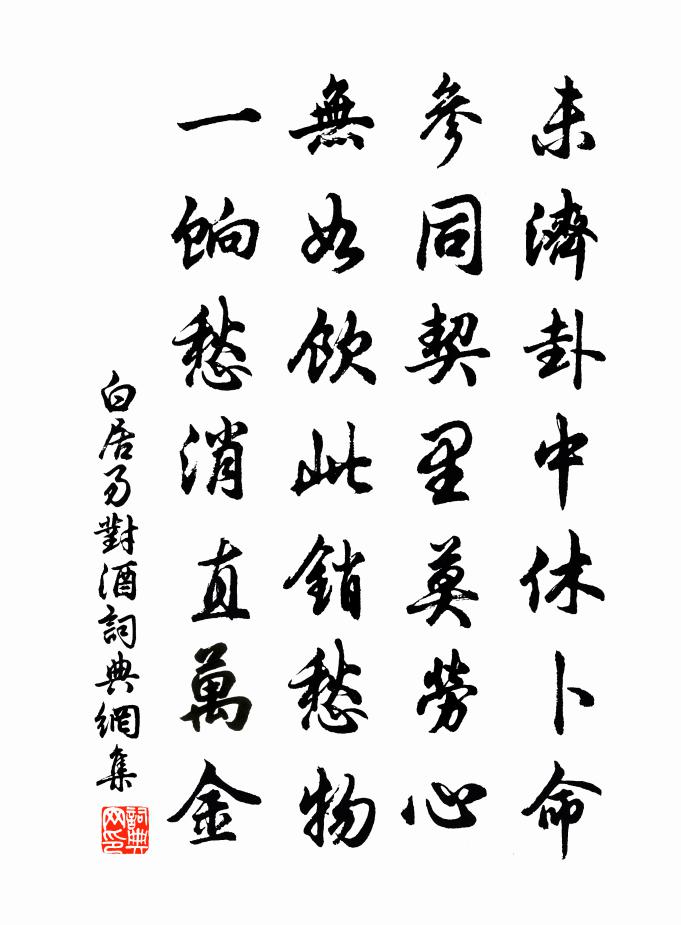 未濟卦中休卜命
參同契里莫勞心
無如飲此銷愁物
一餉愁消直萬金
白居易對酒詞典網集
詞典网印